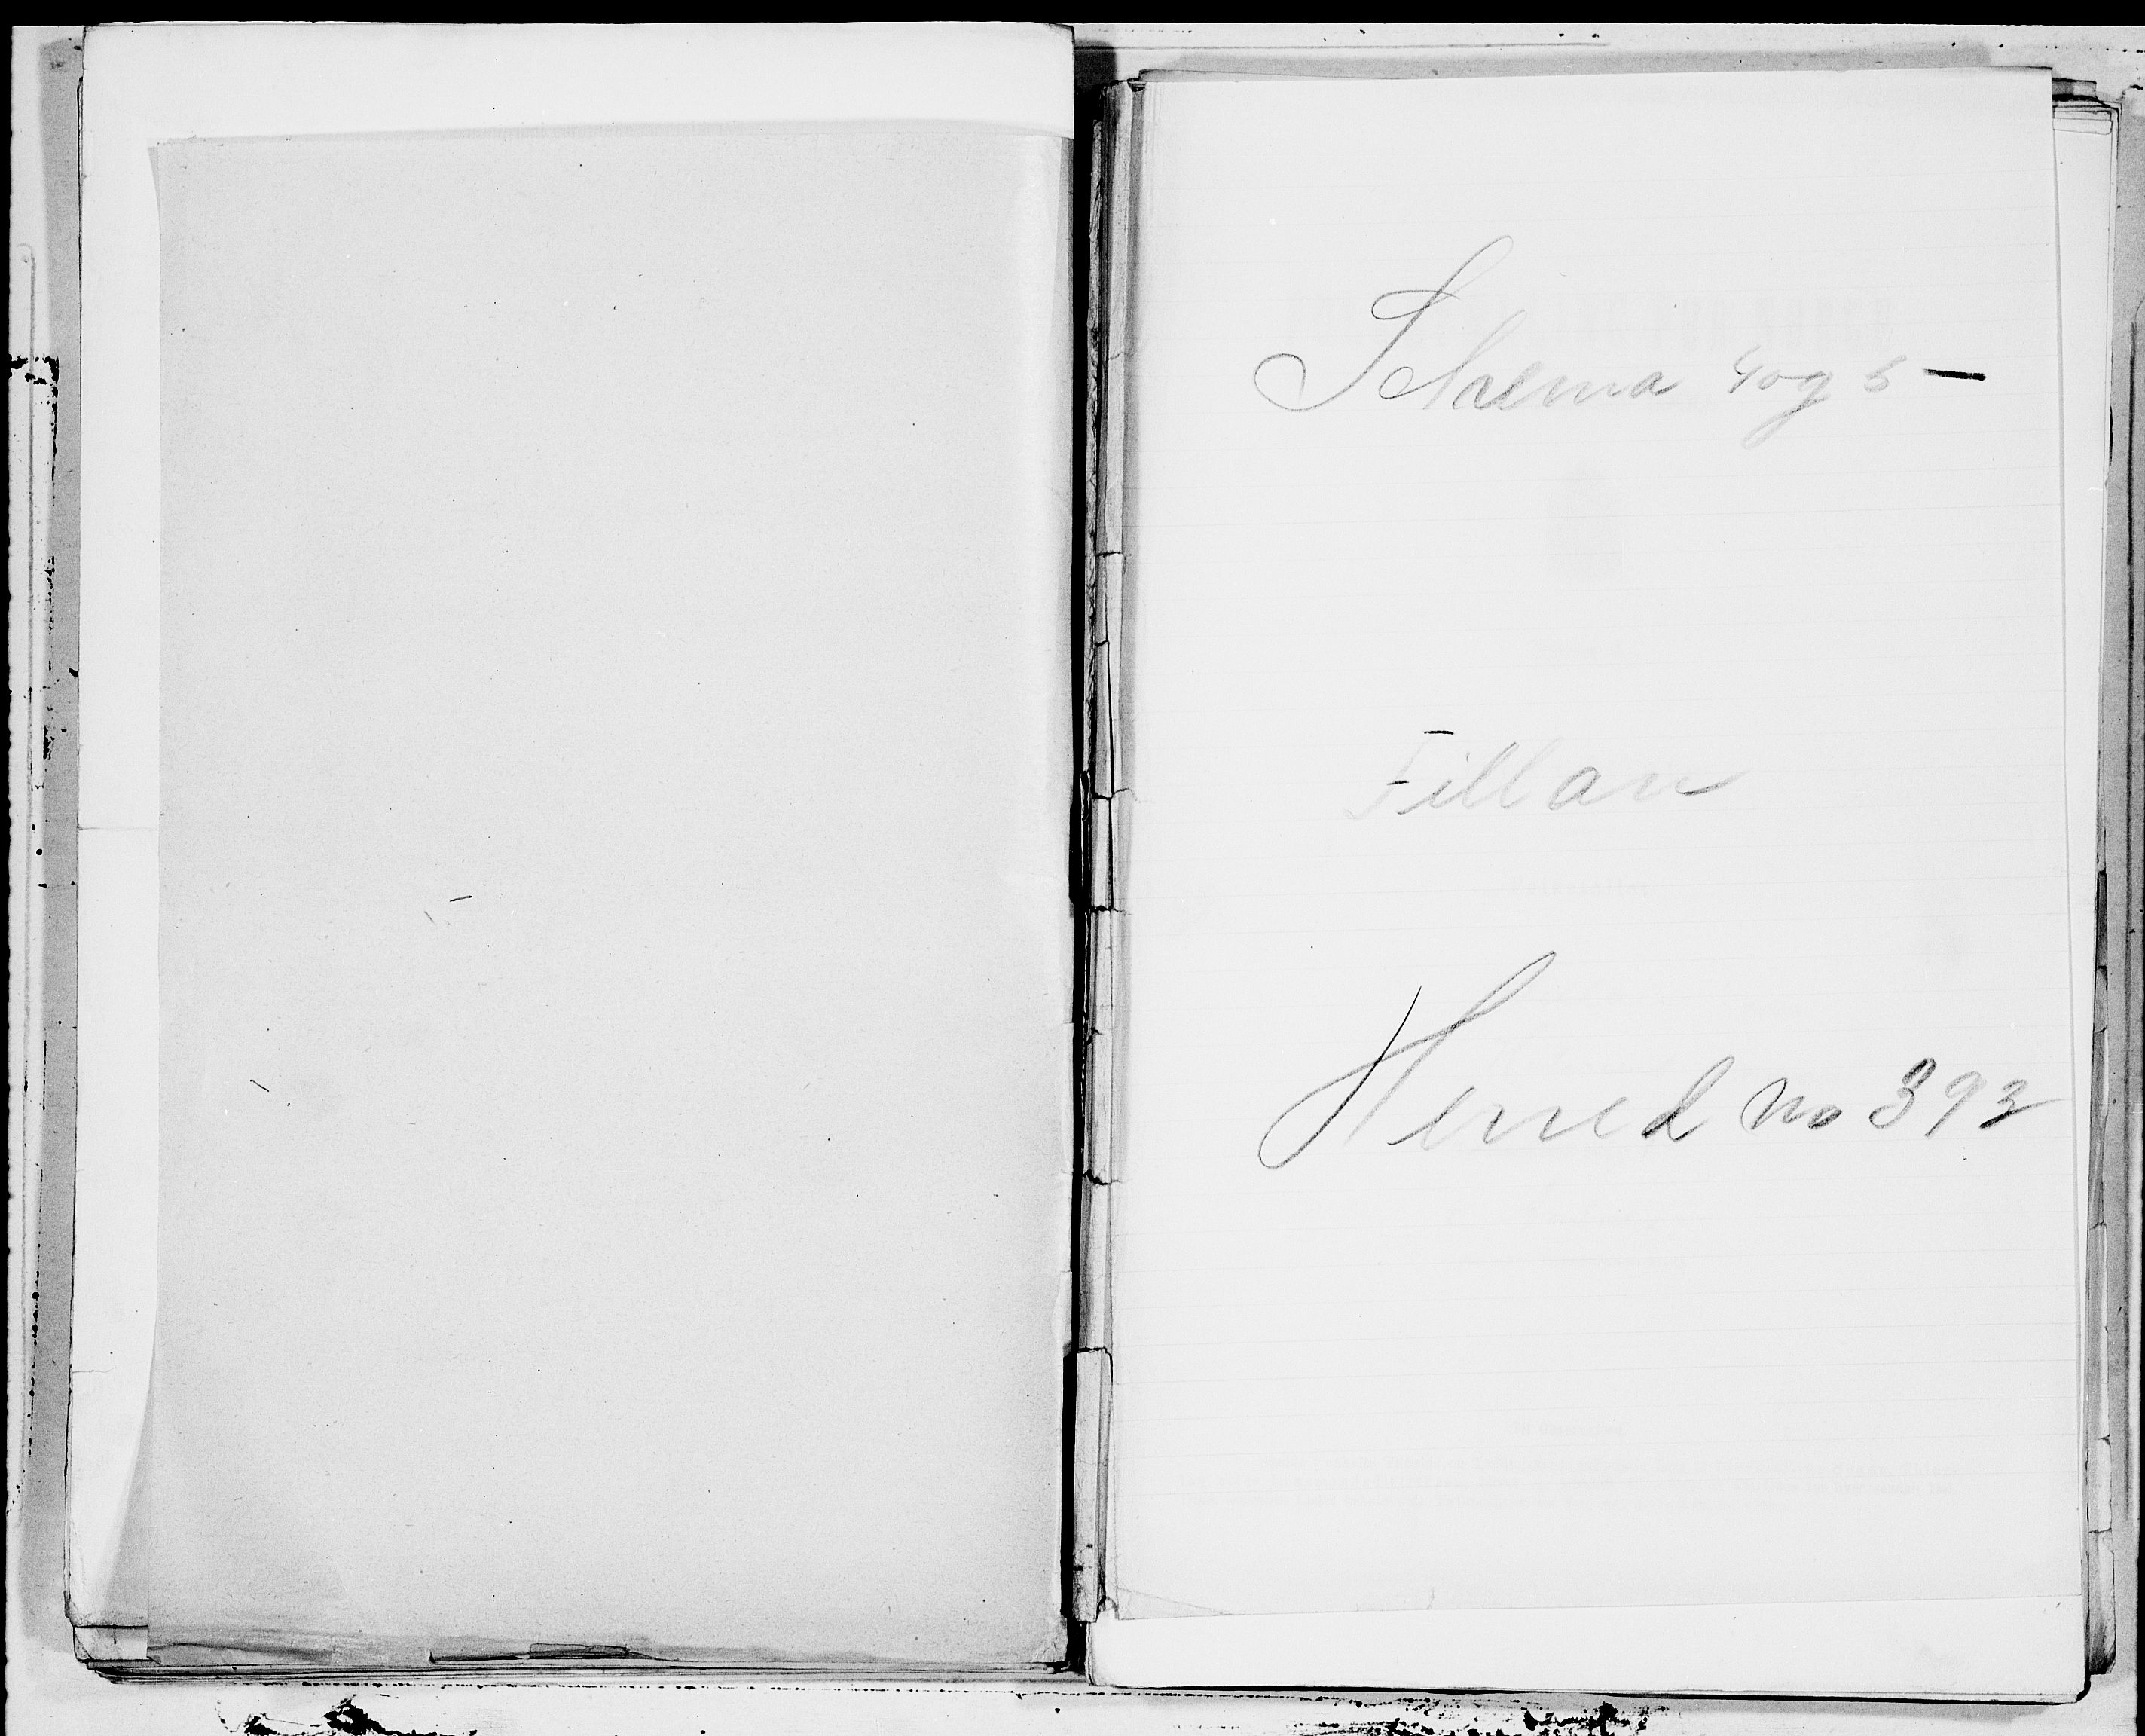 Schema 4 og 5 —
Fillan
Herred No 393